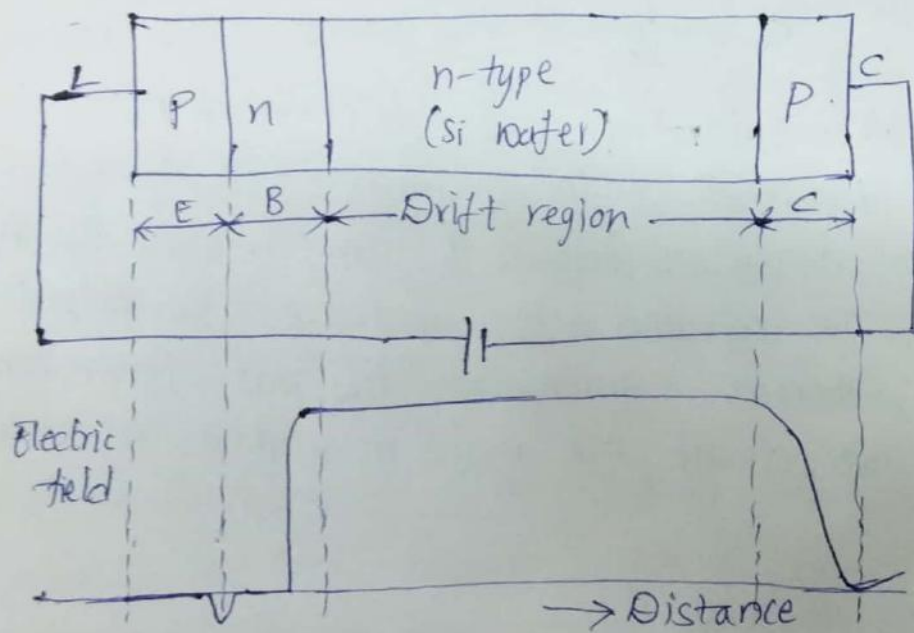 L
P
n
n-type
(Si wafer)
P
C
E
B
Drift region
C
Electric
field
→ Distance